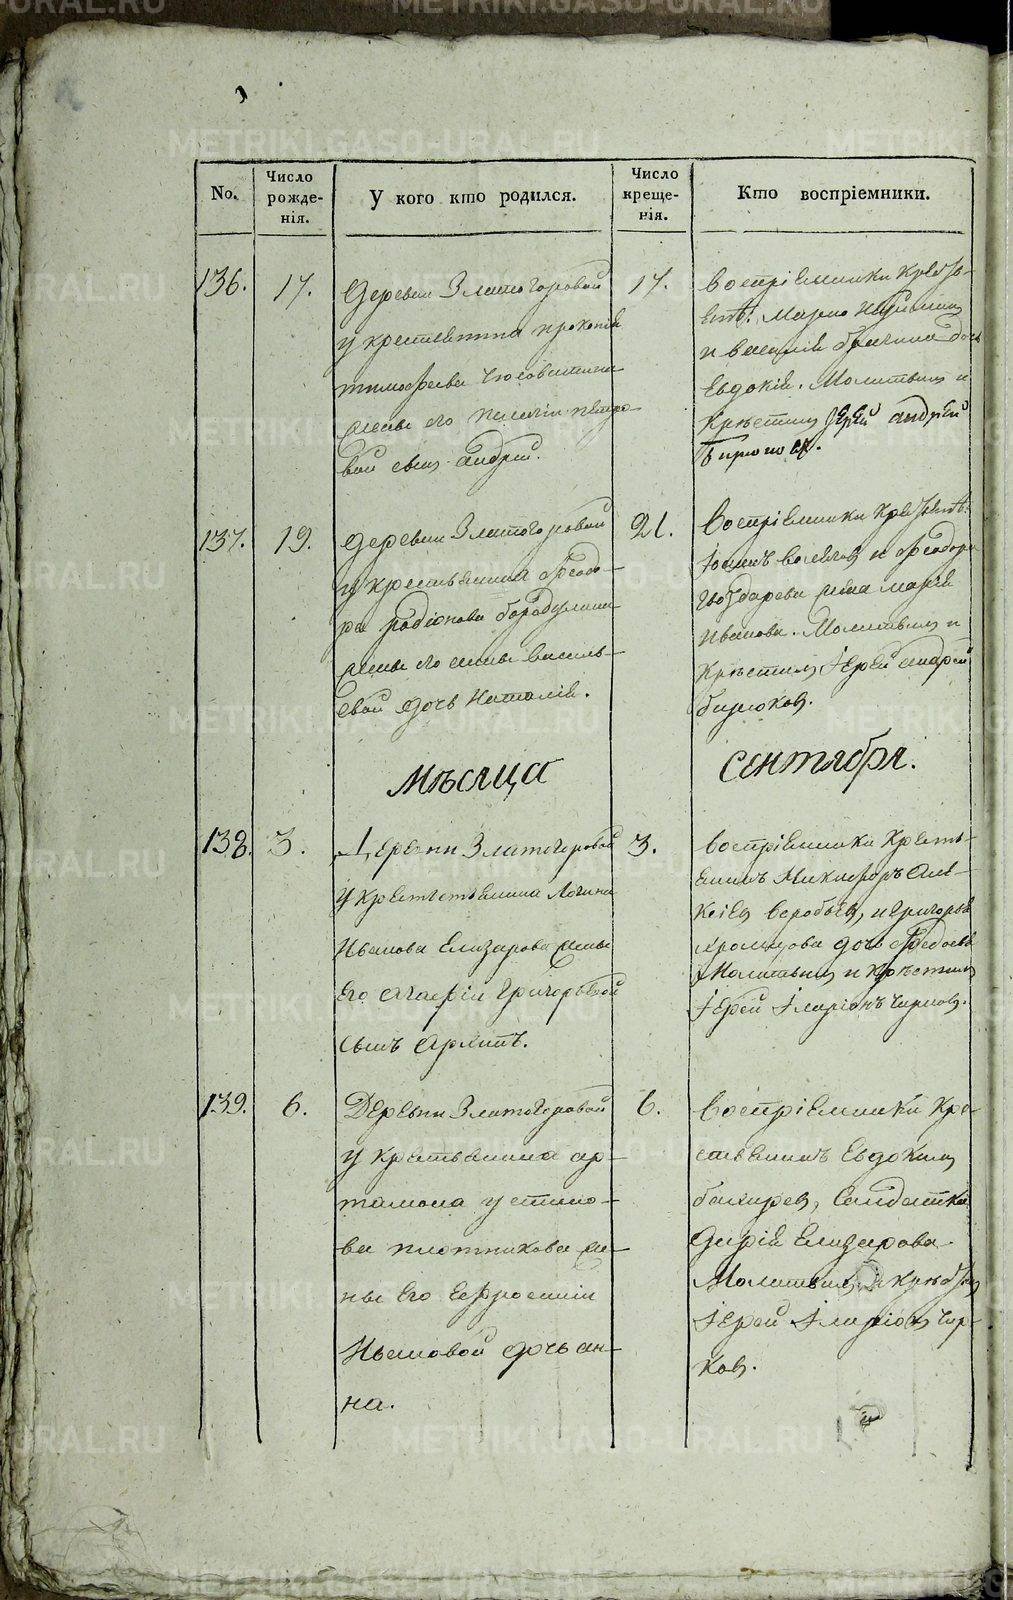 No.
Число рожде-
нія.
У кого кто родился.
Число креще-
нія.
Кто воспріемники.
136. 17.
Деревни Златогоровой
у крестьянина Прокопія
Тимофеева
жены его Пелагіи Петро-
вой сынъ Андрей.
17.
Воспріемники
Марко
и Василія Брагина дочь
Евдокія. Молитвилъ и
Крѣстилъ Іерей Андрей
Бирюковъ.
137. 19.
Деревни Златогоровой
у крестьянина Феодо-
ра Родіонова Бородулина
жены его Анны Василь-
евой дочь Наталія.
21.
Воспріемники
и Феодора
жена Марія
Иванова. Молитвилъ и
Крѣстилъ Іерей Андрей
Бирюковъ.
Мѣсяца Сентября.
138. 3.
Деревни Златогоровой
у Логина
Иванова Елизарова жены
Его Агафіи Григорьевой
сынъ
3.
Воспріемники Кресть-
янинъ Никифоръ Алѣ-
ксѣевъ Воробьевъ, и Григорья
дочь
Молитвилъ и Крѣстилъ
Іерей Іларіонъ Чирковъ.
139. 6.
Деревни Златогоровой
у Крестьянина Ар-
тамона Устино-
ва Плотникова же-
ны Его Ефросиніи
Ивановой дочь Ан-
на.
6.
Воспріемники Кре-
стьянинъ Евдокимъ
Солдатка
Дарія Елизарова
Молитвилъ и
Іерей Іларіонъ Чир-
ковъ.
METRIKI.GASO-URAL.RU